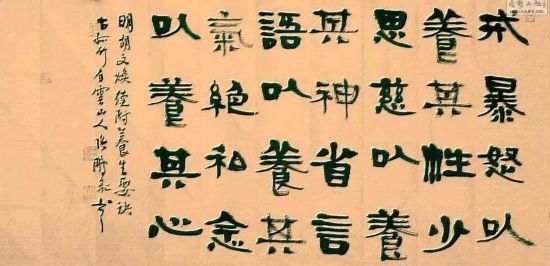 戒暴怒以
養其性少
思慈以養
其神省言
語以養其
氣絕私念
以養其心
明胡文煥 附養生要訣
白雲山人